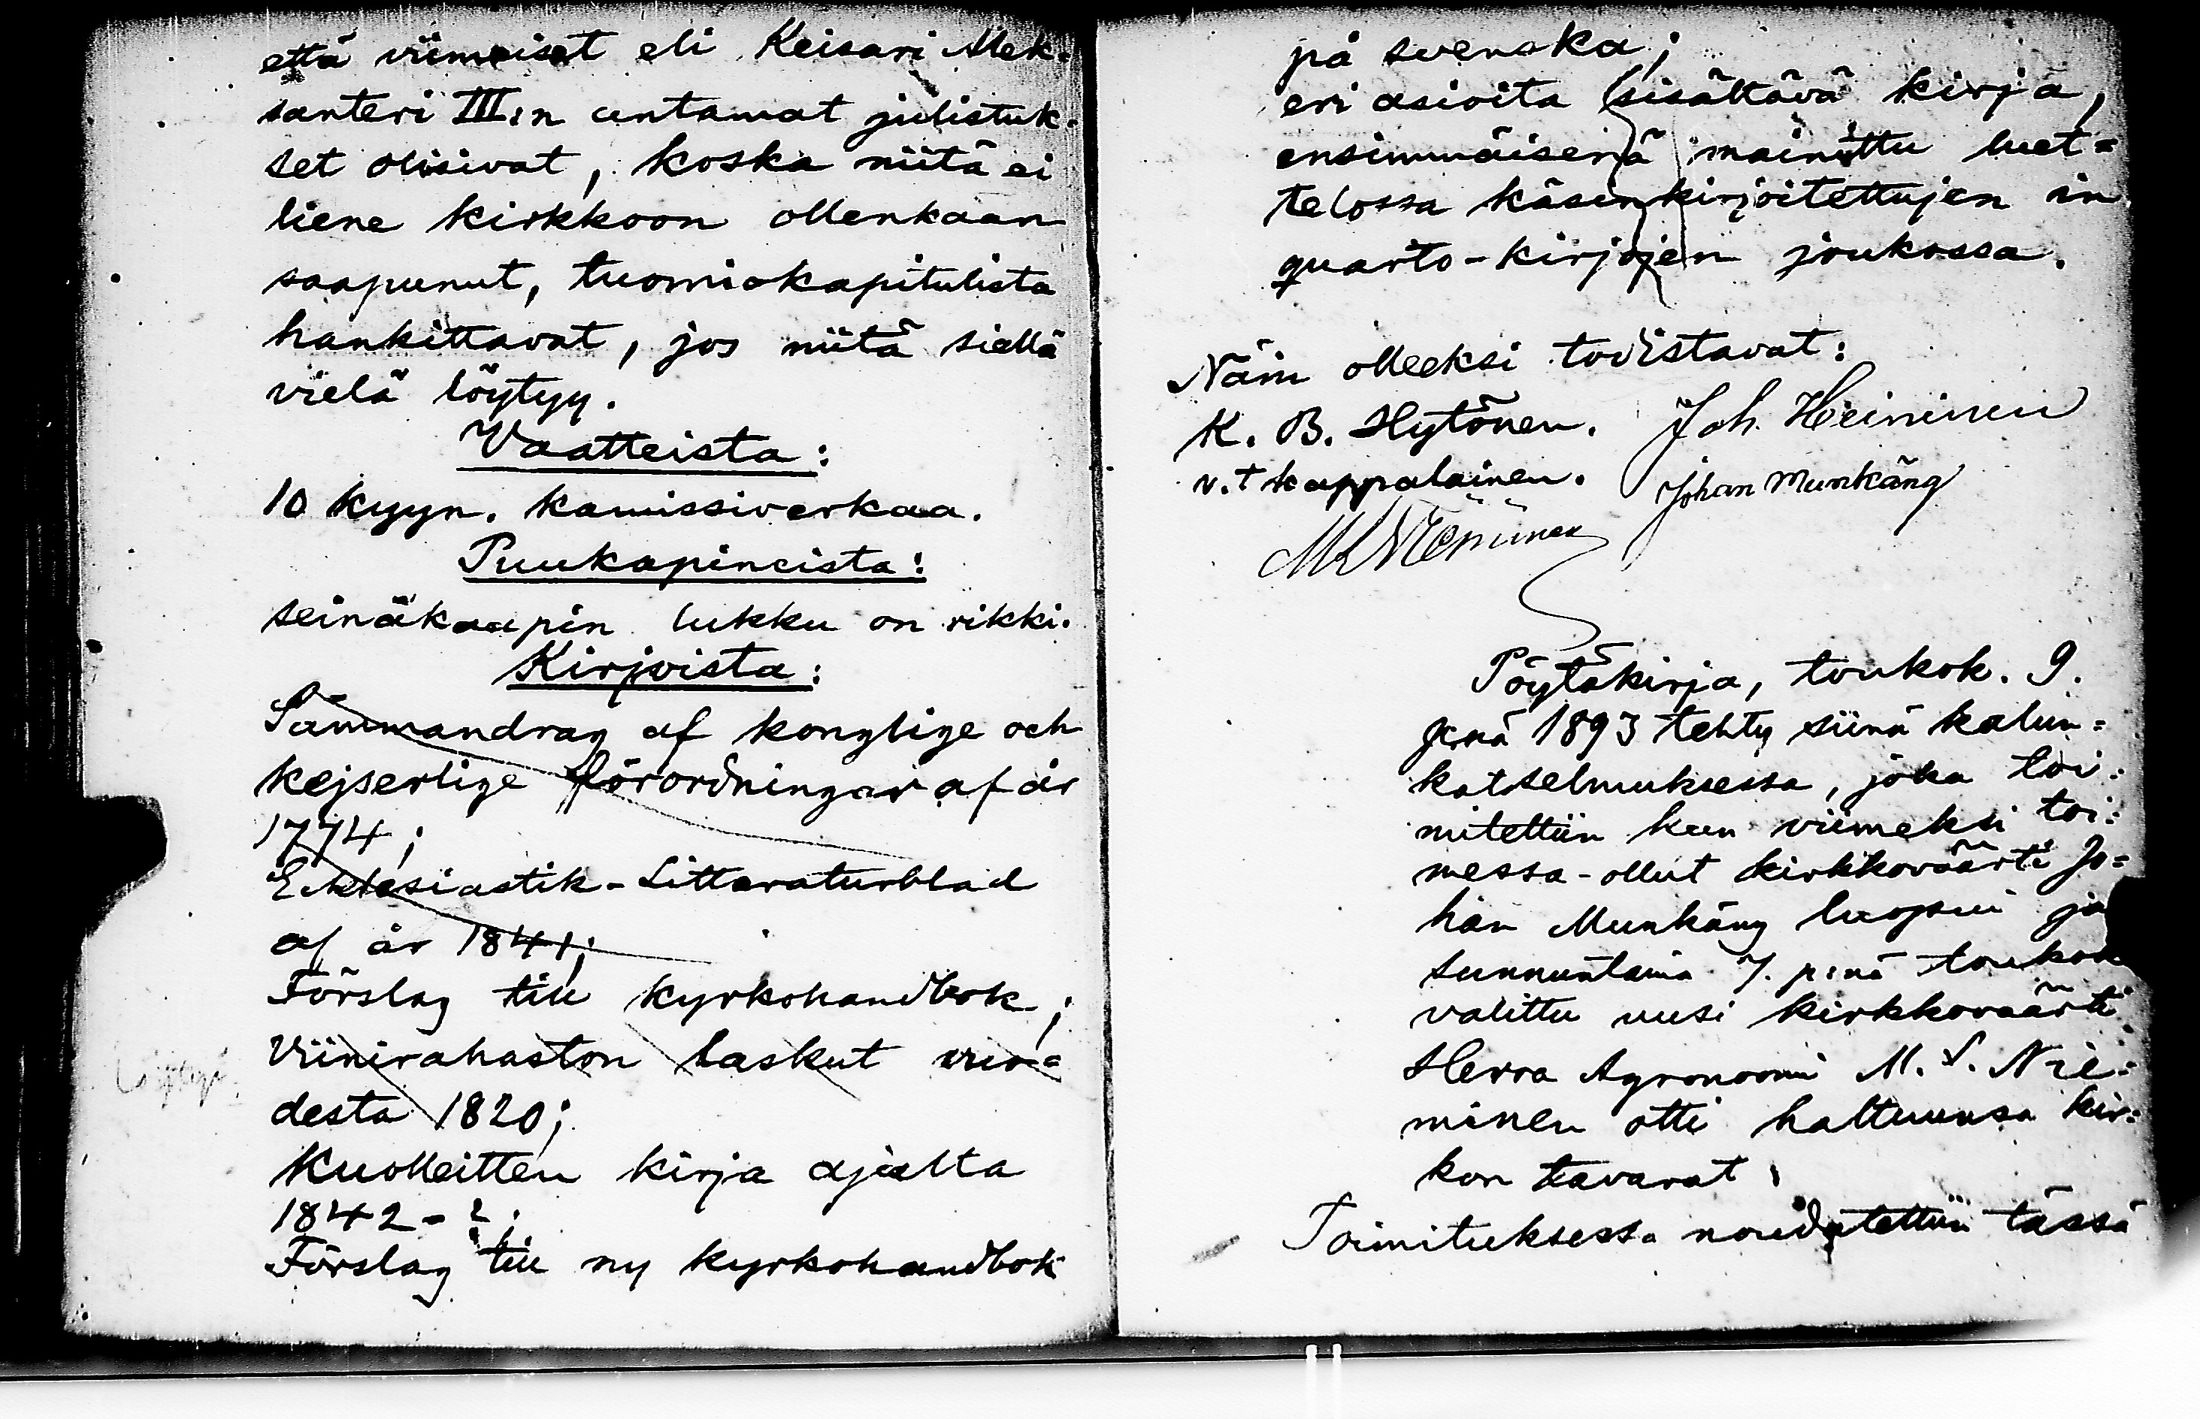 että viimeiset eli Keisari Alek-
santeri III:n antamat julistuk-
set olisivat, koska niitä ei
liene kirkkoon ollenkaan
saapunut, tuomiokapitulista
hankittavat, jos niitä siellä
vielä löytyy.
Vaatteista:
10 kyyn. kamissiverkaa.
Puukapineista:
seinäkaapin lukku on rikki.
Kirjoista:
Sammandrag af konglige och
kejserlige förordningar af år
1774;
Ecklesiastik-Litteraturblad
af år 1841;
Förslag till kyrkohandbok;
Viinirahaston laskut vuo=
desta 1820;
Kuolleitten kirja ajalta
1842-?;
Förslag till ny kyrkohandbok
på svenska;
eri asioita sisältävä kirja,
ensimmäisenä mainittu luet=
telossa käsinkirjoitettujen in
quarto-kirjojen joukossa.
Näin olleeksi todistavat:
K. B. Hytönen. Joh. Heininen
v.t kappalainen. Johan Munkäng
Pöytäkirja, toukok. 9.
p:nä 1893 tehty siinä kalun=
katselmuksessa, joka toi=
mitettiin kun viimeksi toi=
messa-ollut kirkkoväärti Jo=
han Munkäng luopui ja
sunnuntaina 7. p:nä toukok
valittu uusi kirkkoväärti
Herra Agronoomi M. L. Nie=
minen otti haltuunsa kir=
kon tavarat.
Toimituksessa noudatettiin tässä